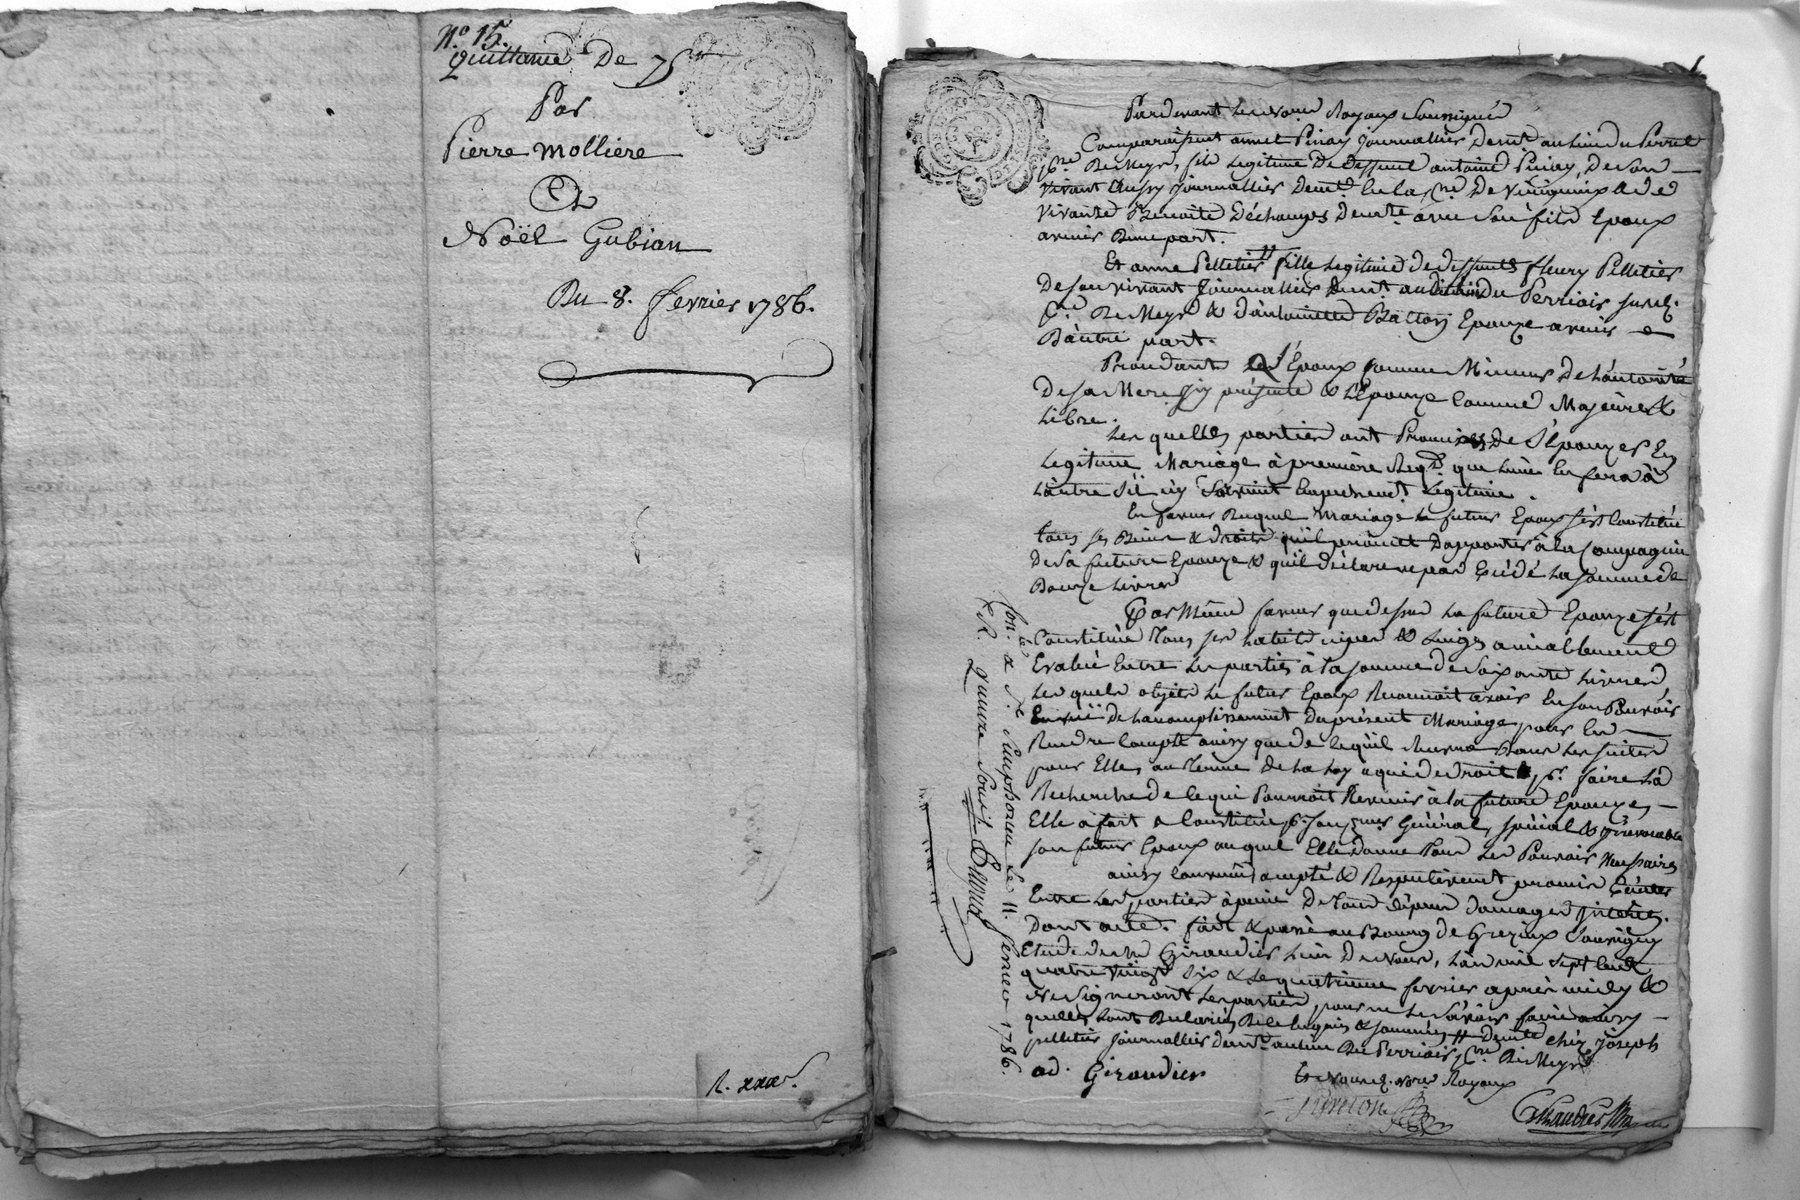 N.° 15.
Quittance De 75
Par
Pierre Molliere
Et
Noël Gubian
Du 8. fevrier 1786.
R. xxx s.
Pardevant les no.res Royaux Soussignés
Comparaissent annet Pinay Journallier Dem.t au lieu du Perret
p.sse De Meys, fils Legitime De Deffunt antoine Pinay, De son
vivant Aussy Journallier Dem.t En la p.sse De
vivante Benoite Déchanges Dem.te avec Son fils Epoux
avenir D'une part.
Et anne Pelletier fille Legitime de deffunts fleury Pelletier
De son vivant Journallier Dem.t au lieu Du Perriois Susd.
p.sse De Meys & D'antoinette Epouze avenir
D'autre part.
Procedants L'Epoux Comme Mineur De L'autorité
De sa Mere Icy présente & L'Epouze Comme Majeure &
Libre.
Les quelles parties ont Promis De S'Epouzer En
Legitime Mariage à première Req.on que L'une En fera à
L'autre S'il n'y Survient Empechement Legitime.
En faveur Duquel Mariage Le futur Epoux s'est Constitué
tous ses Biens & droits qu'il promet D'apporter à La Compagnie
De Sa future Epouze & qu'il déclare ne pas Excédé La Somme de
Douze Livres
Par Même faveur que dessus La future Epouze s'est
Constituée Tous ses habits nipes & Linges amiablement
Evalué Entre Les parties à La Somme de Soixante Livres
Les quels objets Le futur Epoux Reconnoit avoir En son Pouvoir
En vuë de L'accomplissement Du présent Mariage pour En
Rendre Compte ainsy que de Ce qu'il Recevra Dans Les suites
pour Elle, au Terme De La Loy a qui de Droit & p.r faire La
Recherche de Ce qui Pourroit Revenir à La future Epouze,
Elle a fait & Constitué p.r son Général, spécial & irrevocable
son futur Epoux auquel Elle donne Tous Les Pouvoirs Nécessaires
ainsy Convenû accepté & Respectivement promis
Entre Les parties à peine De tous dépens domages Intérêts.
Dont acte. fait & passé au Bourg de Grezieux Souvigny
Etude de M.e Giraudier L'un De nous, L'an mil sept Cent
quatre vingt Six & Le quatrieme fevrier après midy &
Ne Signeront Les parties pour ne Le Savoir faire
quelles Sont De Ce Enquis & Sommées # Dem.te chéz Joseph
pelletier Journallier Dem.t au lieu Du Perriois p.sse De Meys
ad. Giraudier
No.res Royaux
Con.lé à S.t Simphorien Le 11. Fevrier 1786.
R. quinze Sols.